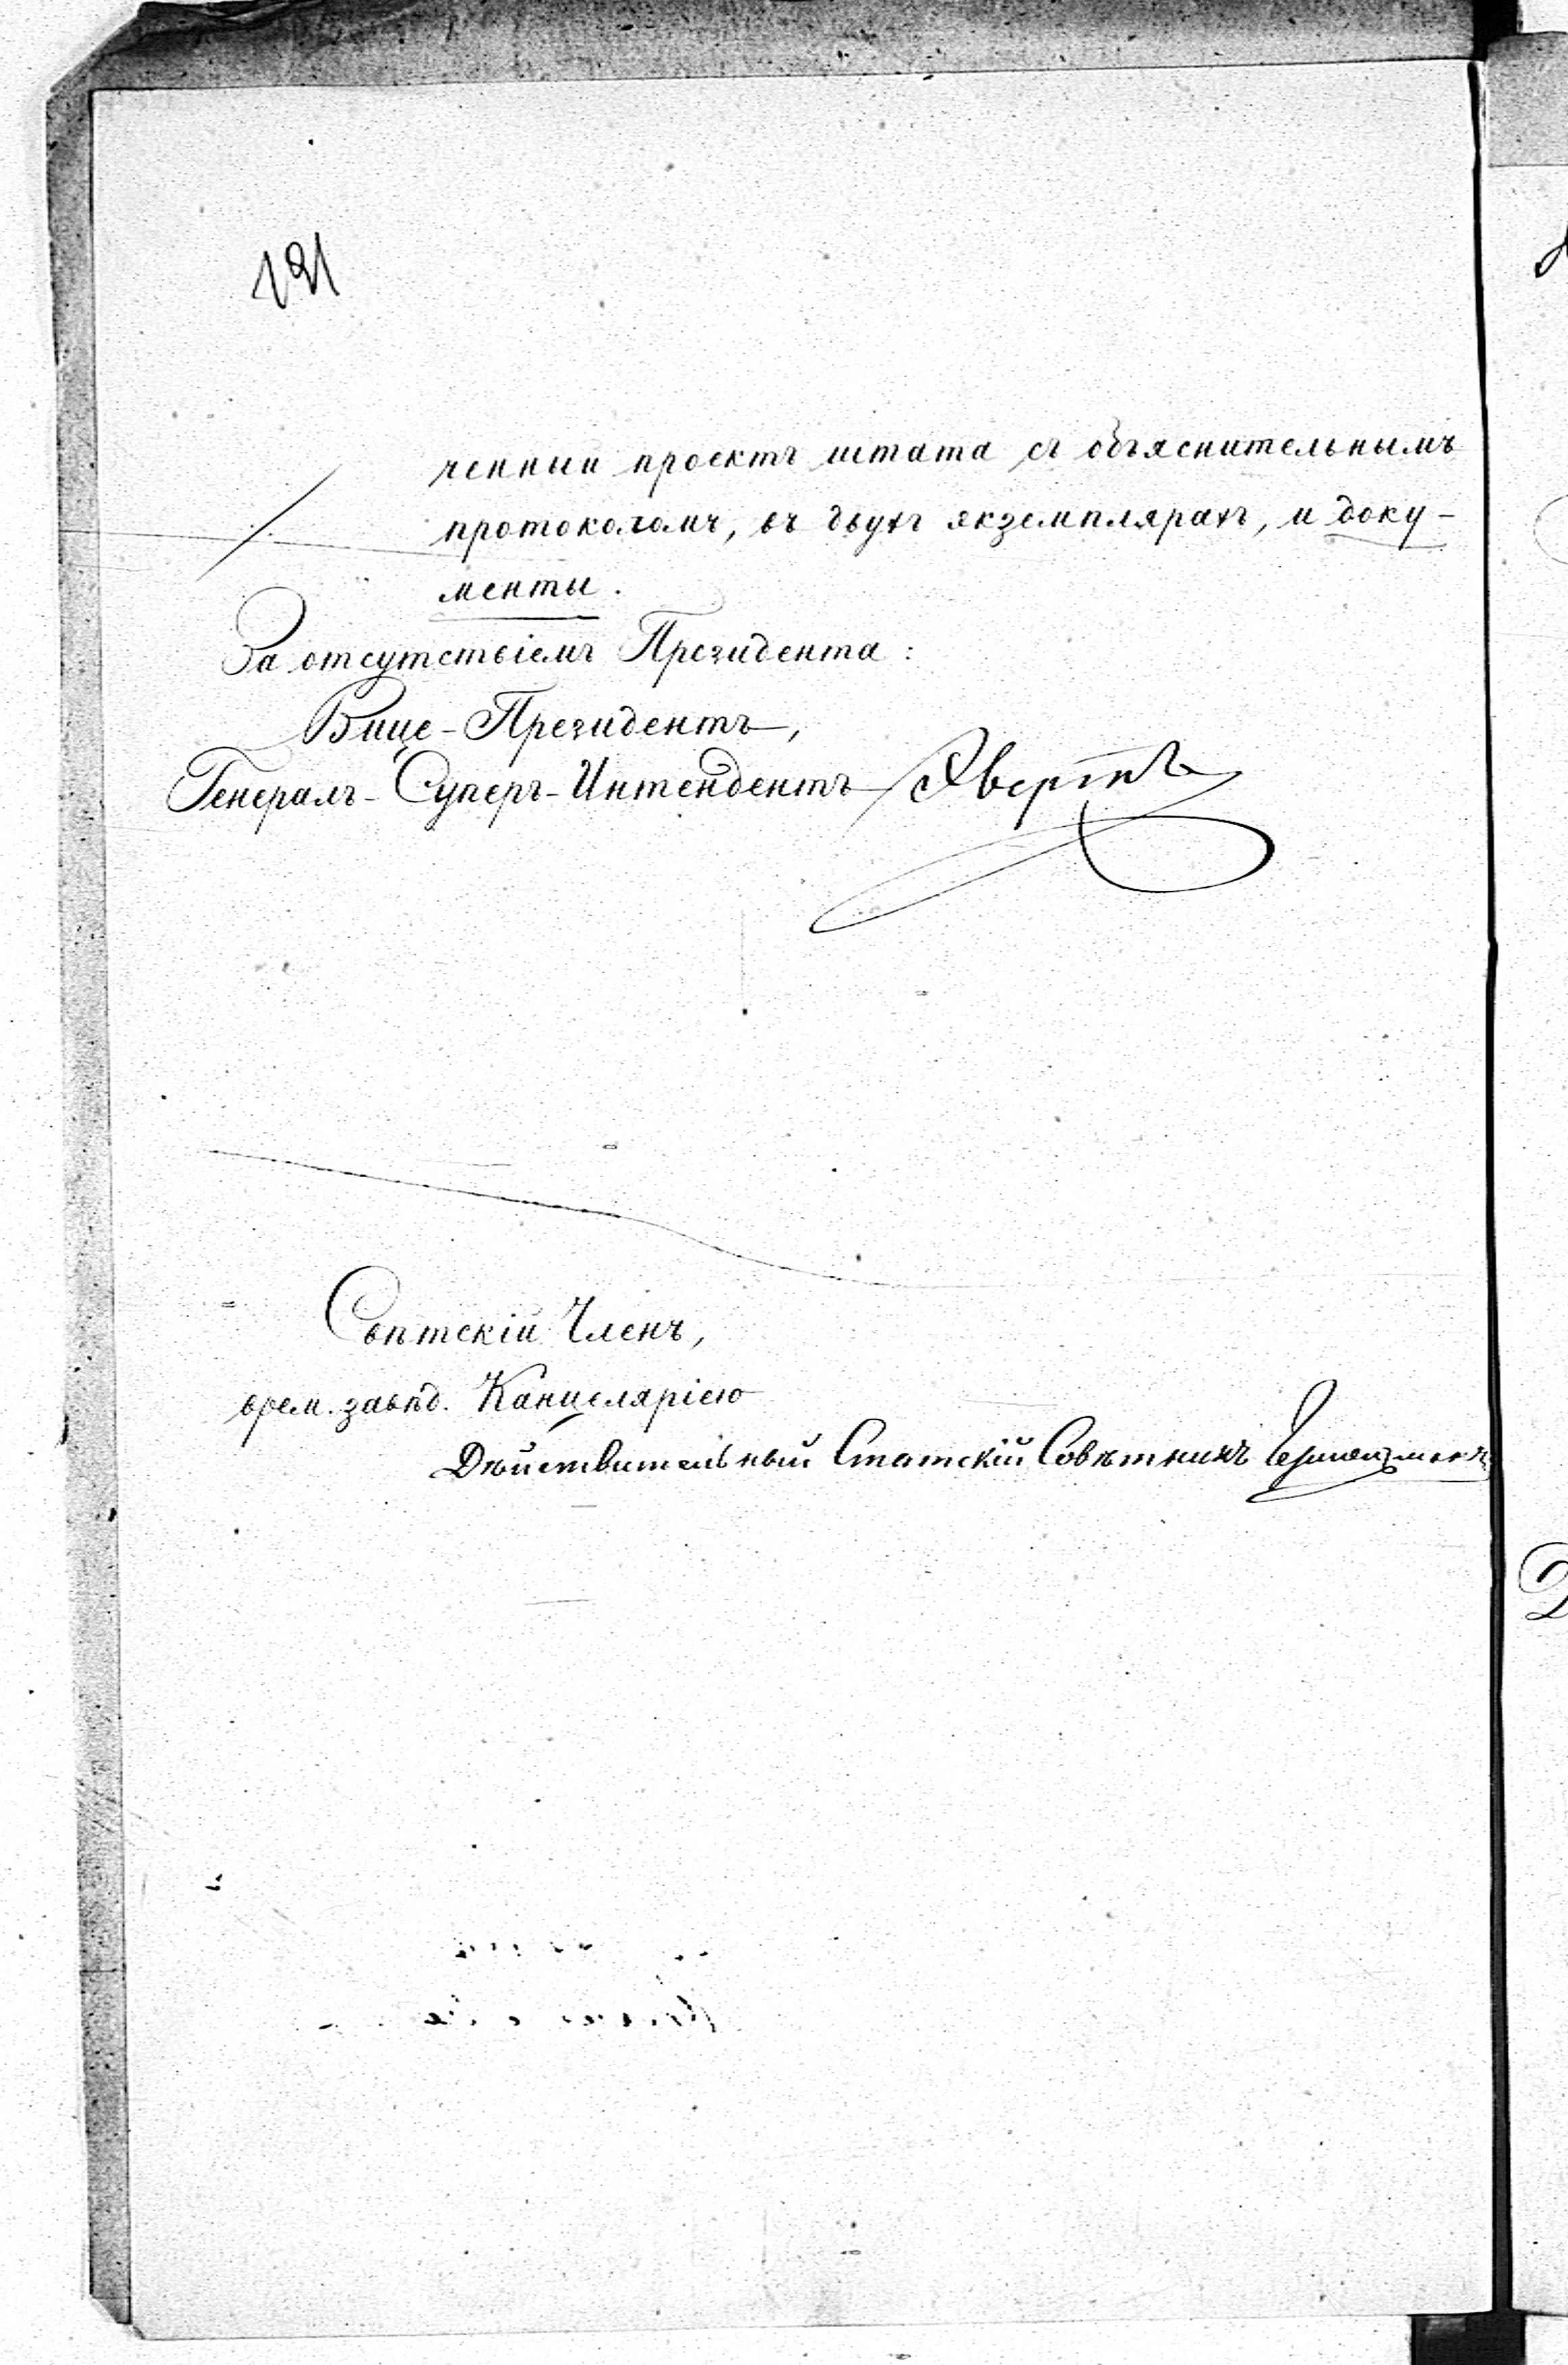 121
ченный проектъ штата съ объяснительнымъ
протоколомъ, въ двухъ экземплярахъ, и доку-
менты.
За отсутствіемъ Президента:
Вице-Президентъ,
Генералъ-Суперъ-Интендентъ Эвертъ
Свѣтскій Членъ,
врем. завѣд. Канцеляріею
Дѣйствительный Статскій Совѣтникъ